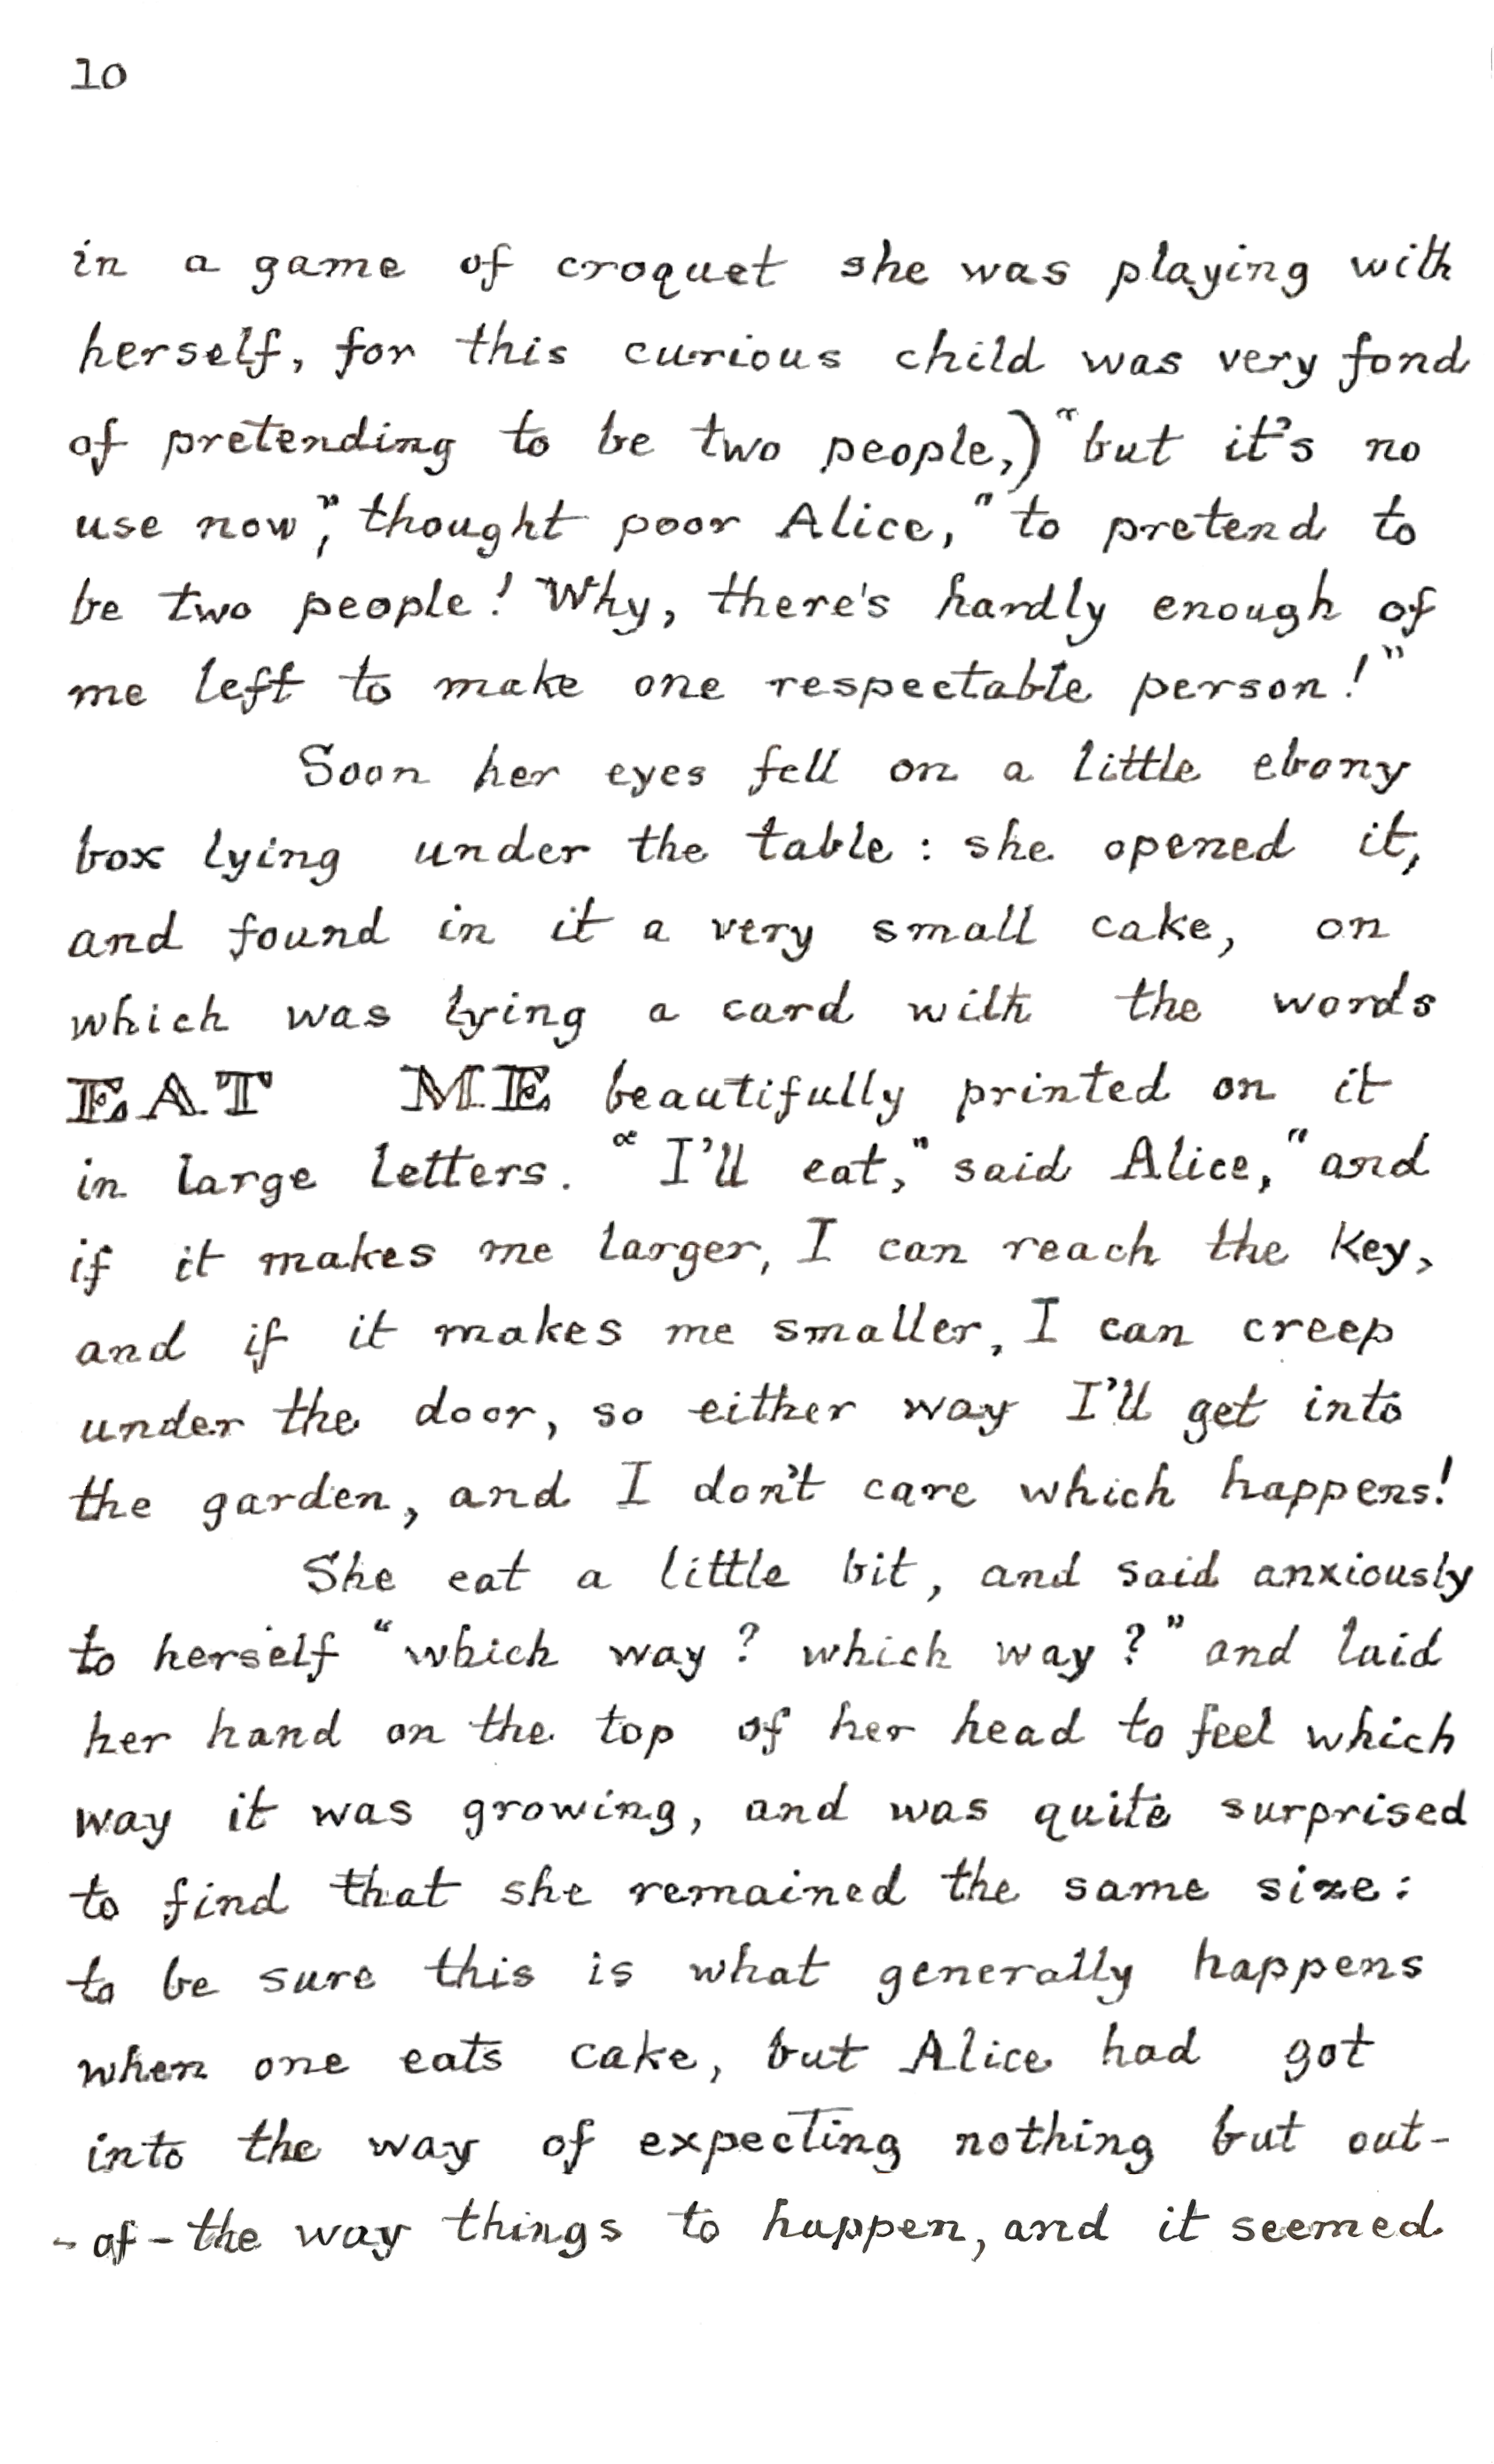 10
in a game of croquet she was playing with
herself, for this curious child was very fond
of pretending to be two people,) "but it's no
use now," thought poor Alice, "to pretend to
be two people! Why, there's hardly enough of
me left to make one respectable person!"
Soon her eyes fell on a little ebony
box lying under the table: she opened it,
and found in it a very small cake, on
which was lying a card with the words
EAT ME beautifully printed on it
in large letters. "I'll eat," said Alice, "and
if it makes me larger, I can reach the key,
and if it makes me smaller, I can creep
under the door, so either way I'll get into
the garden, and I don't care which happens!
She eat a little bit, and said anxiously
to herself "which way? which way?" and laid
her hand on the top of her head to feel which
way it was growing, and was quite surprised
to find that she remained the same size:
to be sure this is what generally happens
when one eats cake, but Alice had got
into the way of expecting nothing but out-
-of-the way things to happen, and it seemed